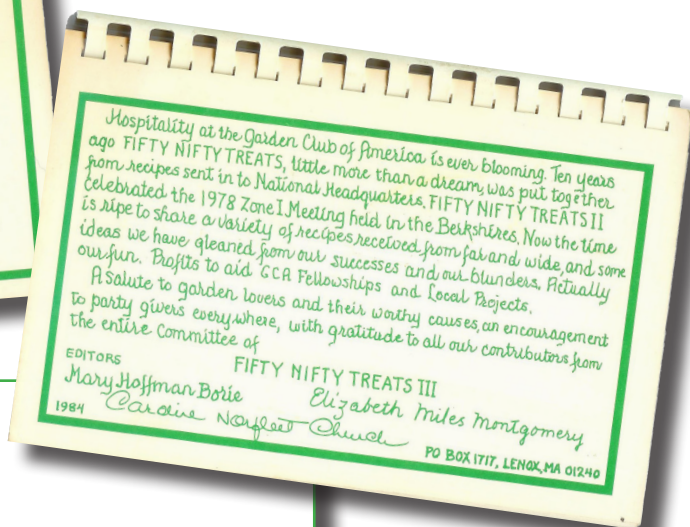 Hospitality at the Garden Club of America is ever blooming. Ten years
ago FIFTY NIFTY TREATS, little more than a dream, was put together
from recipes sent in to National Headquarters. FIFTY NIFTY TREATS II
celebrated the 1978 Zone I Meeting held in the Berkshires. Now the time
is ripe to share a variety of recipes received from far and wide, and some
ideas we have gleaned from our successes and our blunders. Actually
our fun. Profits to aid GCA Fellowships and Local Projects.
A salute to garden lovers and their worthy causes, an encouragement
to party givers everywhere, with gratitude to all our contributors from
the entire Committee of
FIFTY NIFTY TREATS III
EDITORS
Mary Hoffman Borie Elizabeth Miles Montgomery
1984 Caroline Norfleet Church
PO BOX 1717, LENOX, MA 01240